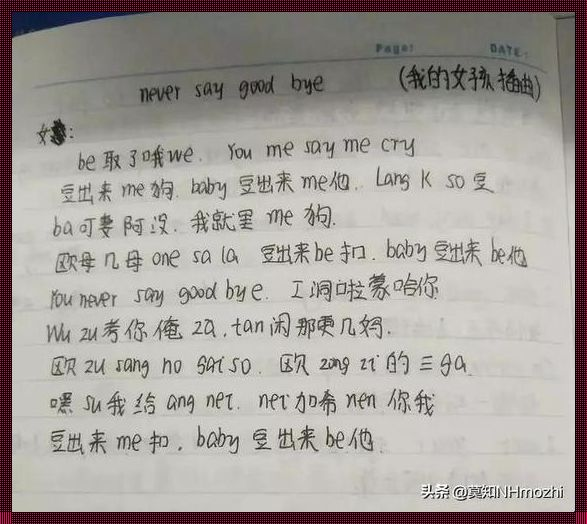 Page: DATE:
never say good bye (我的女孩 插曲)
女:
be 取了哦 we. You me say me cry
豆出来 me 狗. baby 豆出来 me 他. Lang K so 豆
ba 可妻 阿没. 我就里 me 狗.
欧母几母 one sa la 豆出来 be 扣. baby 豆出来 be 他
You never say good bye. 工洞啦蒙哈你
Wu zu 考你俺 za, tan 闲那更几妈.
欧 zu sang no sai so. 欧 zong zi 的三 ga
嘿 su 我给 ang net. net 加希 nen 你我
豆出来 me 扣. baby 豆出来 be 他
头条 @莫知NHmozhi